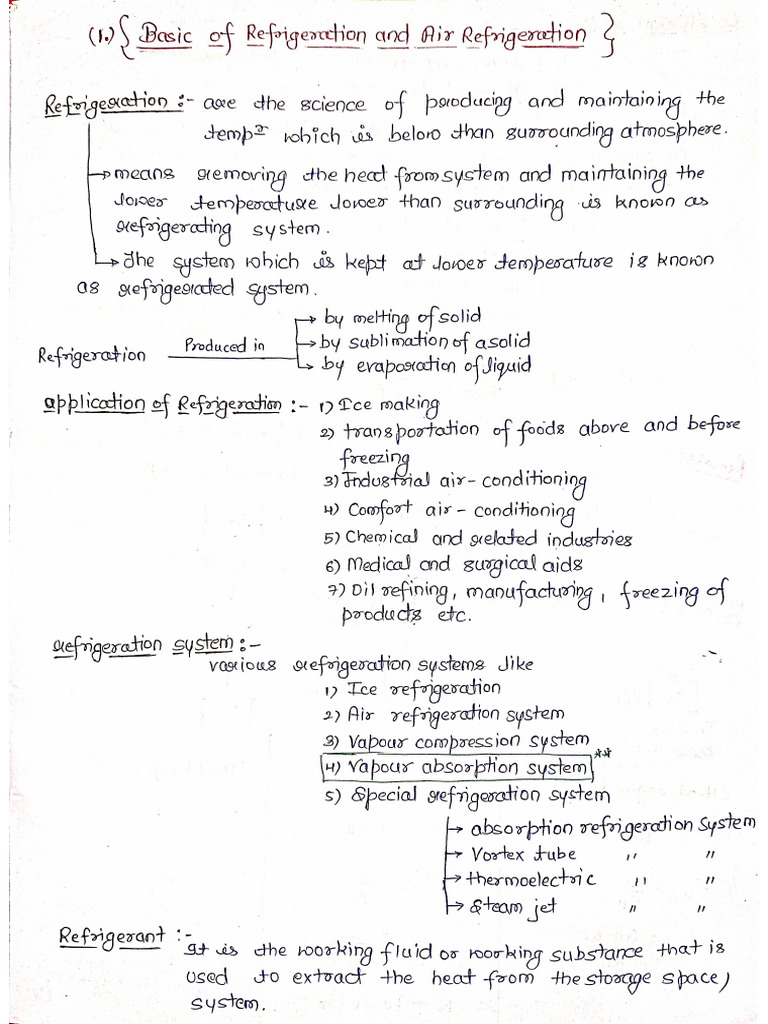 (1.) { Basic of Refrigeration and Air Refrigeration }
Refrigeration :- are the science of producing and maintaining the
tempr which is below than surrounding atmosphere.
→ means removing the heat from system and maintaining the
lower temperature lower than surrounding is known as
refrigerating system.
→ The system which is kept at lower temperature is known
as refrigerated system.
→ by melting of solid
Refrigeration Produced in → by sublimation of a solid
→ by evaporation of liquid
application of Refrigeration :- 1) Ice making
2) transportation of foods above and before
freezing
3) Industrial air-conditioning
4) Comfort air-conditioning
5) Chemical and related industries
6) Medical and surgical aids
7) Oil refining, manufacturing, freezing of
products etc.
refrigeration system :-
various refrigeration systems like
1) Ice refrigeration
2) Air refrigeration system
3) Vapour compression system
4) Vapour absorption system **
5) Special refrigeration system
→ absorption refrigeration system
→ Vortex tube " "
→ thermoelectric " "
→ Steam jet " "
Refrigerant :-
It is the working fluid or working substance that is
used to extract the heat from the storage space,
system.